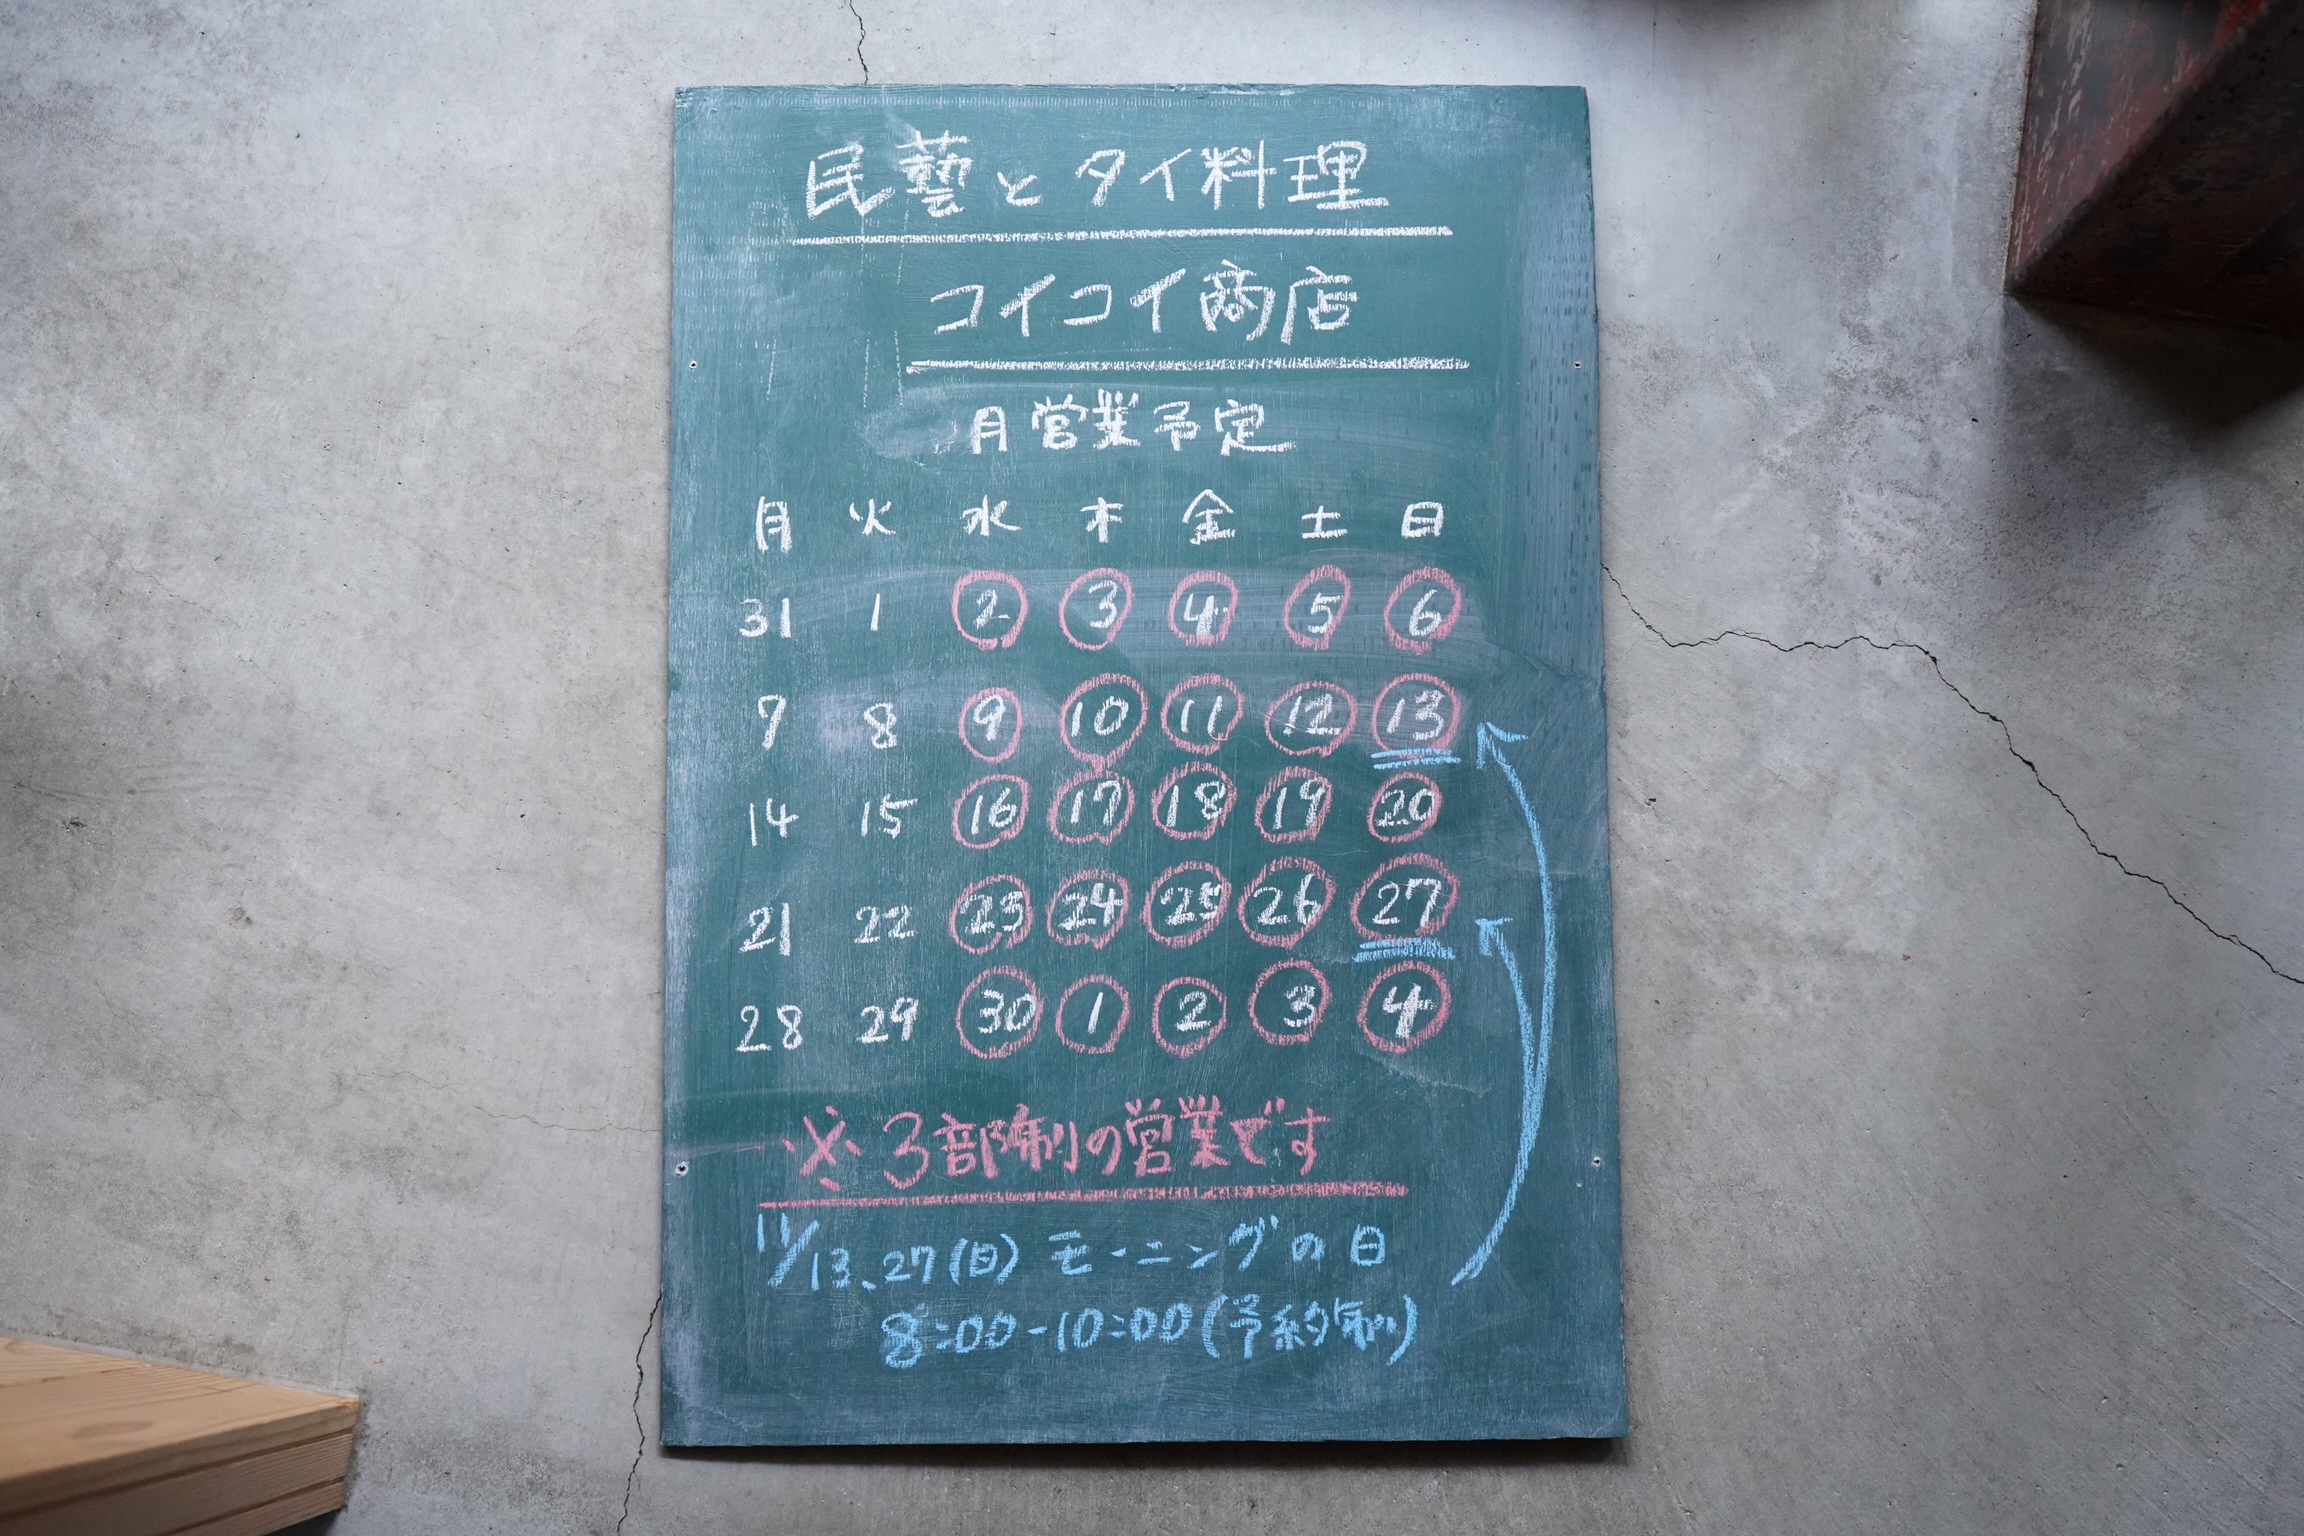 民藝とタイ料理
コイコイ商店
月営業予定
月 火 水 木 金 土 日
31 1 2 3 4 5 6
7 8 9 10 11 12 13
14 15 16 17 18 19 20
21 22 23 24 25 26 27
28 29 30 1 2 3 4
※3部制の営業です
11/13、27(日)モーニングの日
8:00-10:00(予約制)